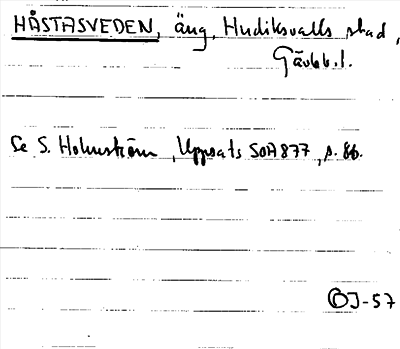 HÅSTASVEDEN, äng, Hudiksvalls stad,
Gävleb. l.
Se S. Holmström, Uppsats SOA 877, s. 86.
BJ-57